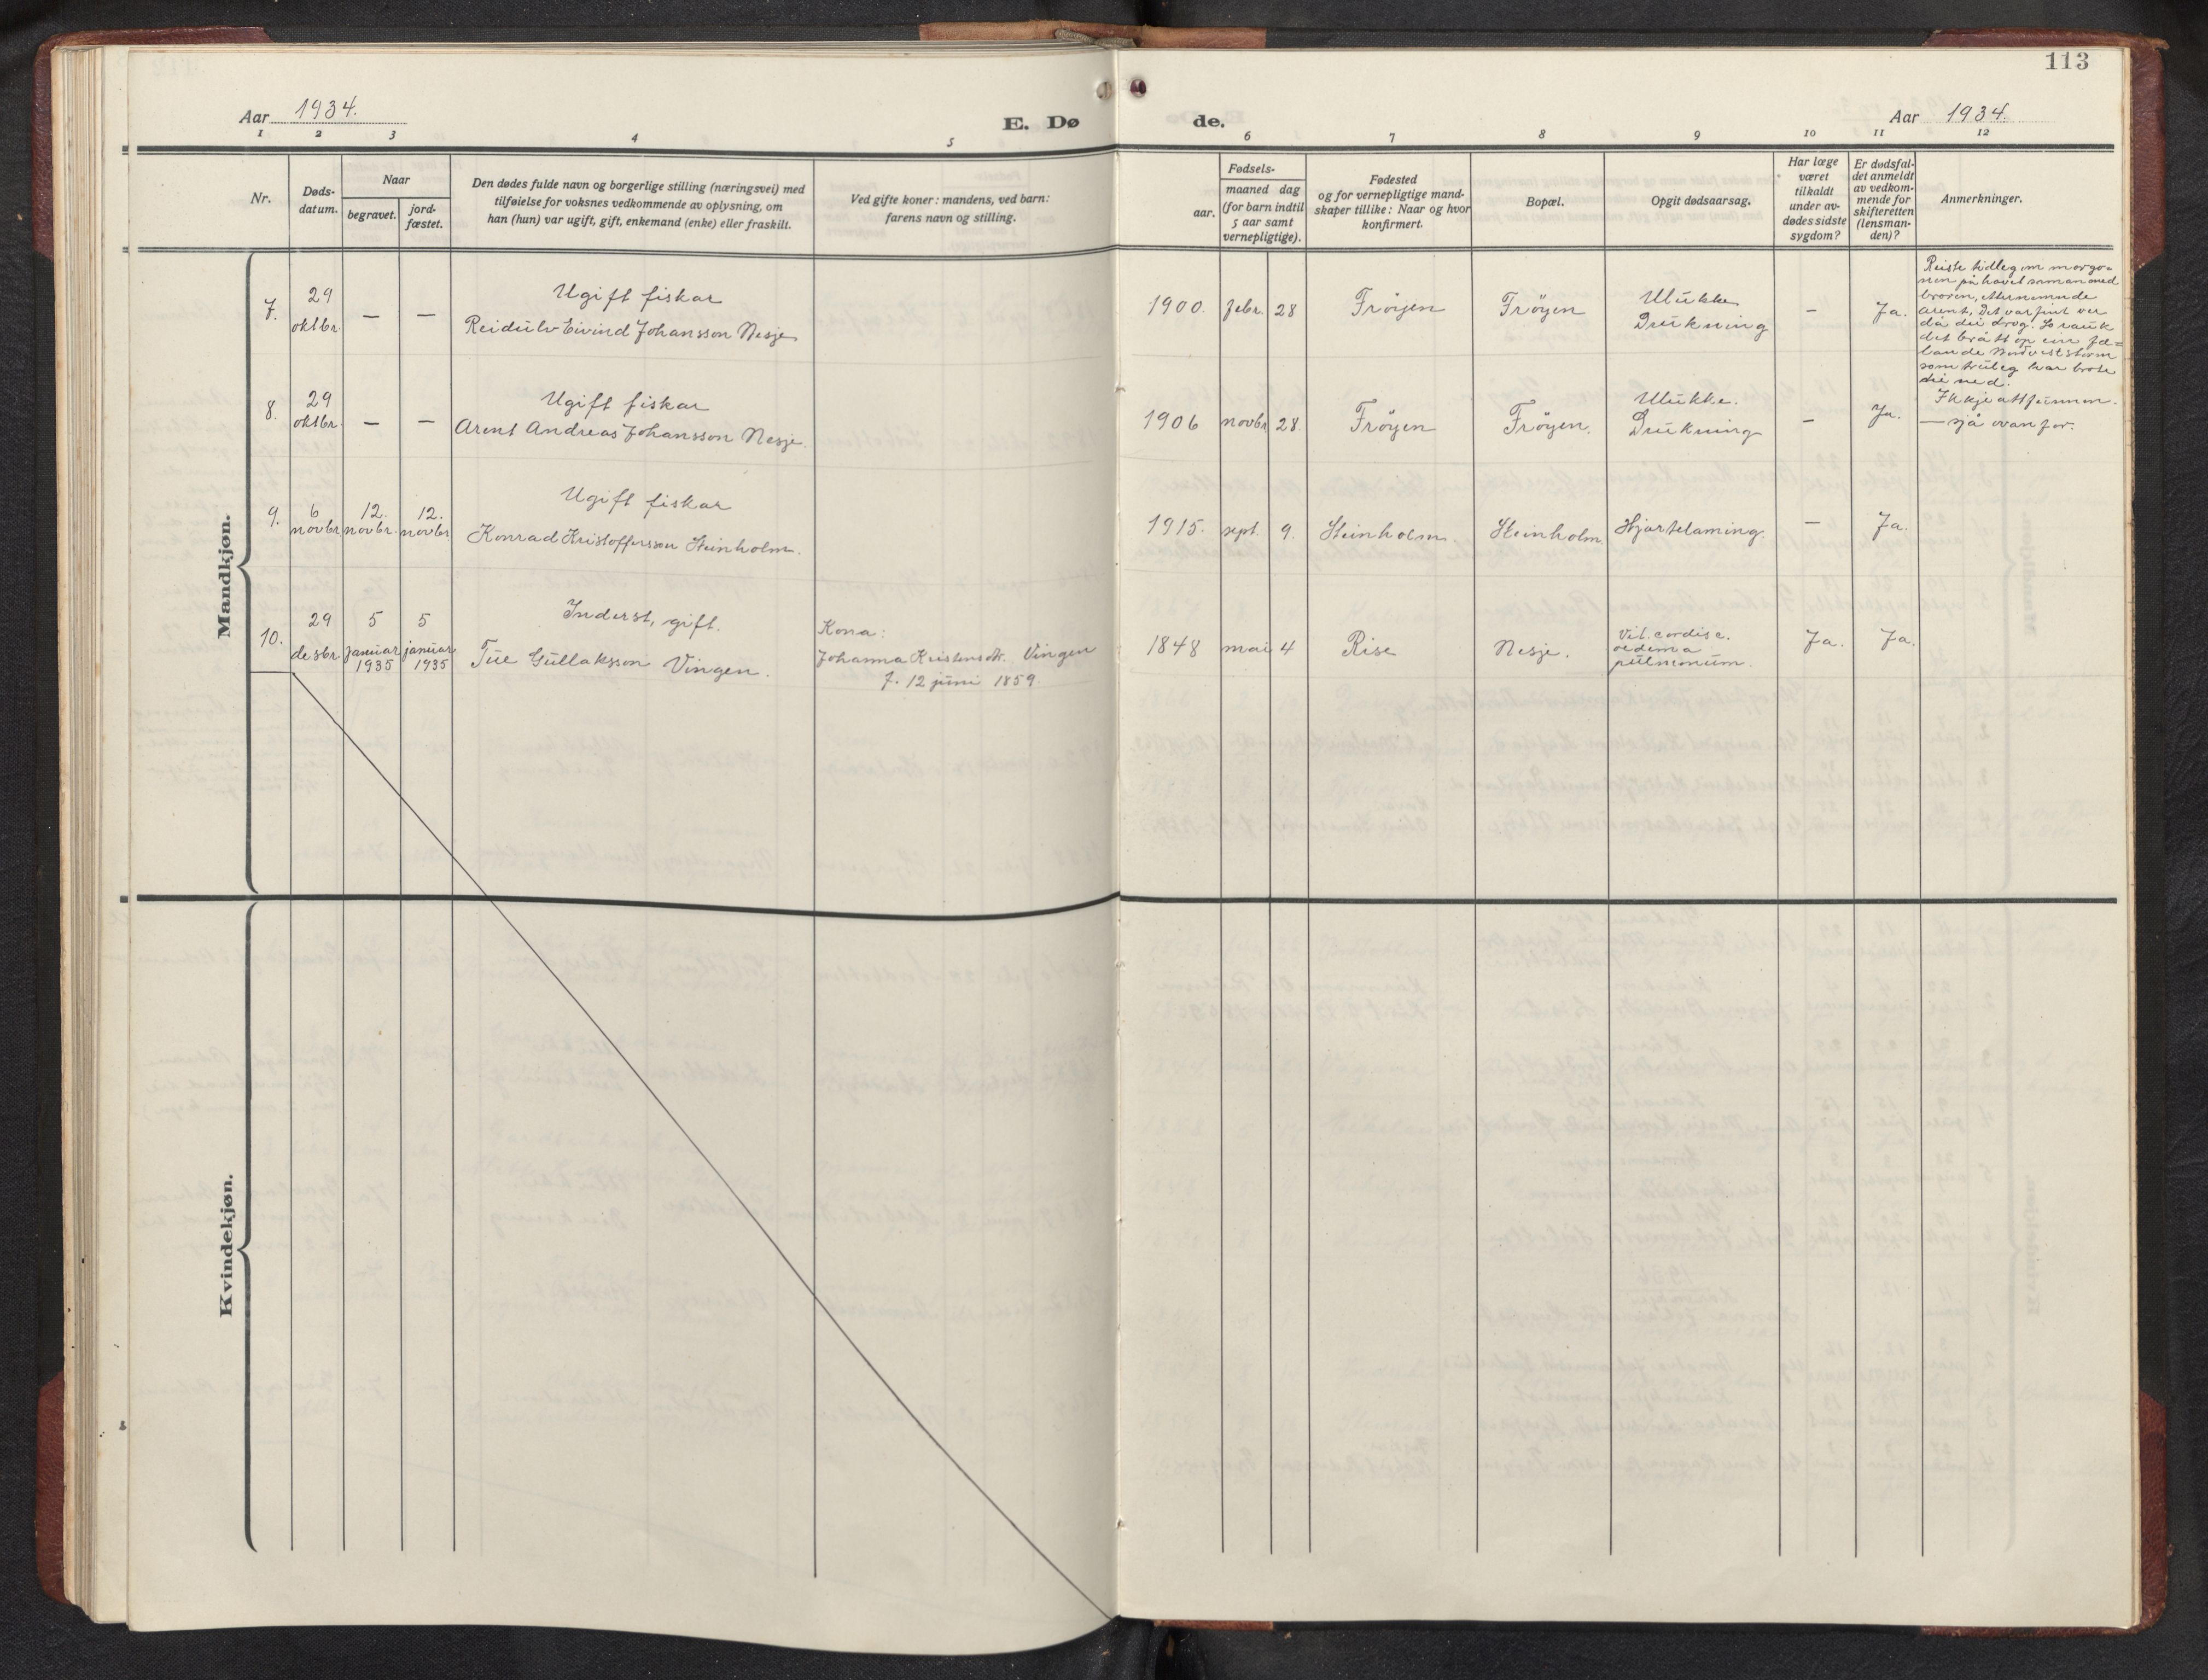 113
Aar 1934.
E. Dø
de.
Aar 1934.
1 2 3 4 5 6 7 8 9 10 11 12
Nr.
Døds-
datum.
Naar
begravet.
jord-
fæstet.
Den dødes fulde navn og borgerlige stilling (næringsvei) med
tilføielse for voksnes vedkommende av oplysning, om
han (hun) var ugift, gift, enkemand (enke) eller fraskilt.
Ved gifte koner: mandens, ved barn:
farens navn og stilling.
Fødsels-
aar.
maaned dag
(for barn indtil
5 aar samt
vernepligtige).
Fødested
og for vernepligtige mand-
skaper tillike: Naar og hvor
konfirmert.
Bopæl.
Opgit dødsaarsag.
Har læge
været
tilkaldt
under av-
dødes sidste
sygdom?
Er dødsfal-
det anmeldt
av vedkom-
mende for
skifteretten
(lensman-
den)?
Anmerkninger.
Mandkjøn.
7.
29
oktbr.
— —
Ugift fiskar
Reidulv Eivind Johansson Nesje
1900. febr. 28
Frøyen
Frøyen
Ulukke
Drukning
—
Ja.
Reiste tidleg um morgo-
nen på havet saman med
broren, etternemnde
Arent. Det var fint ver
då dei drog. So rauk
det brått op ein
Nordveststorm
som truleg har brote
dei ned.
Ikkje attfunnen.
8.
29
oktbr.
— —
Ugift fiskar
Arent Andreas Johansson Nesje.
1906 novbr. 28.
Frøyen
Frøyen.
Ulukke.
Drukning
—
Ja.
— sjå ovanfor.
9.
6
novbr.
12.
novbr.
12.
novbr.
Ugift fiskar
Konrad Kristoffersson Steinholm.
1915. sept. 9.
Steinholm
Steinholm
Hjartelaming.
—
Ja.
10.
29
desbr.
5
januar
1935
5
januar
1935
Inderst, gift.
Tue Gullaksson Vingen.
Kona:
Johanna Kristensdtr. Vingen
f. 12 juni 1859.
1848 mai 4
Rise
Nesje.
Vit. cordis c.
oedema
pulmonum.
Ja.
Ja.
Kvindekjøn.